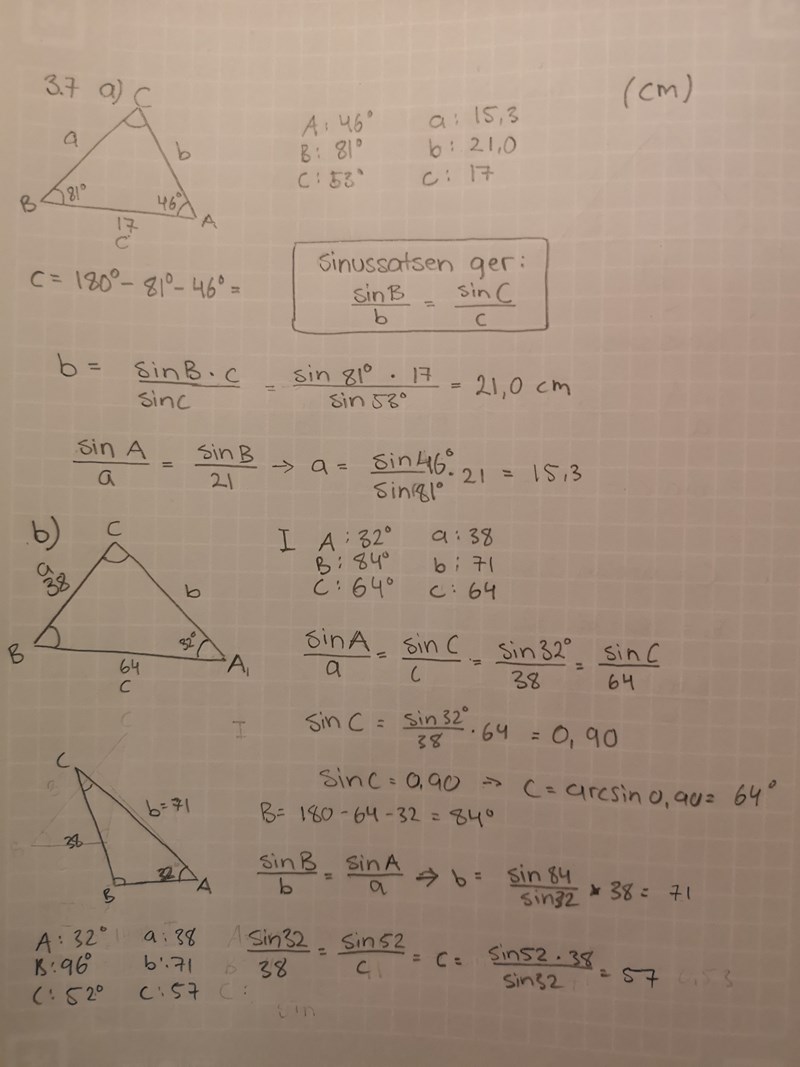 3.7 a) C (cm)
a b
B 81° 46° A
17
C
A: 46° a: 15,3
B: 81° b: 21,0
C: 53° c: 17
C = 180° - 81° - 46° =
Sinussatsen ger:
sinB/b = sinC/c
b = sinB · c / sinC = sin 81° · 17 / sin 53° = 21,0 cm
sin A / a = sinB / 21 → a = sin46° / sin81° · 21 = 15,3
b) C
a
38 b
B 32° A₁
64
C
I A: 32° a: 38
B: 84° b: 71
C: 64° c: 64
sinA/a = sinC/c = sin32°/38 = sinC/64
I sinC = sin32°/38 · 64 = 0,90
sinC = 0,90 → C = arcsin 0,90 = 64°
B = 180 - 64 - 32 = 84°
sinB/b = sinA/a ⇒ b = sin84/sin32 * 38 = 71
C
b=71
38
32°
B A
A: 32° a: 38
B: 96° b: 71
C: 52° c: 57
sin32/38 = sin52/c = c = sin52 · 38 / sin32 = 57